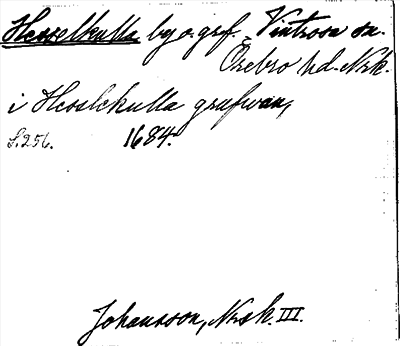 Hesselkulla by o. grf. Vintrosa sn.
Örebro hd. Nrk.
i Hesslekulla grufwan,
S. 256. 1684.
Johansson, Nrsk. III.